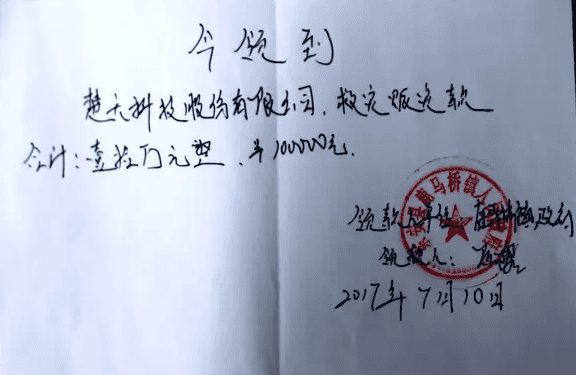 今领到
楚天科技股份有限公司,救灾赈济款
合计:壹拾万元整,¥100000元.
领款单位:
领款人:
2017年7月10日
马桥镇人